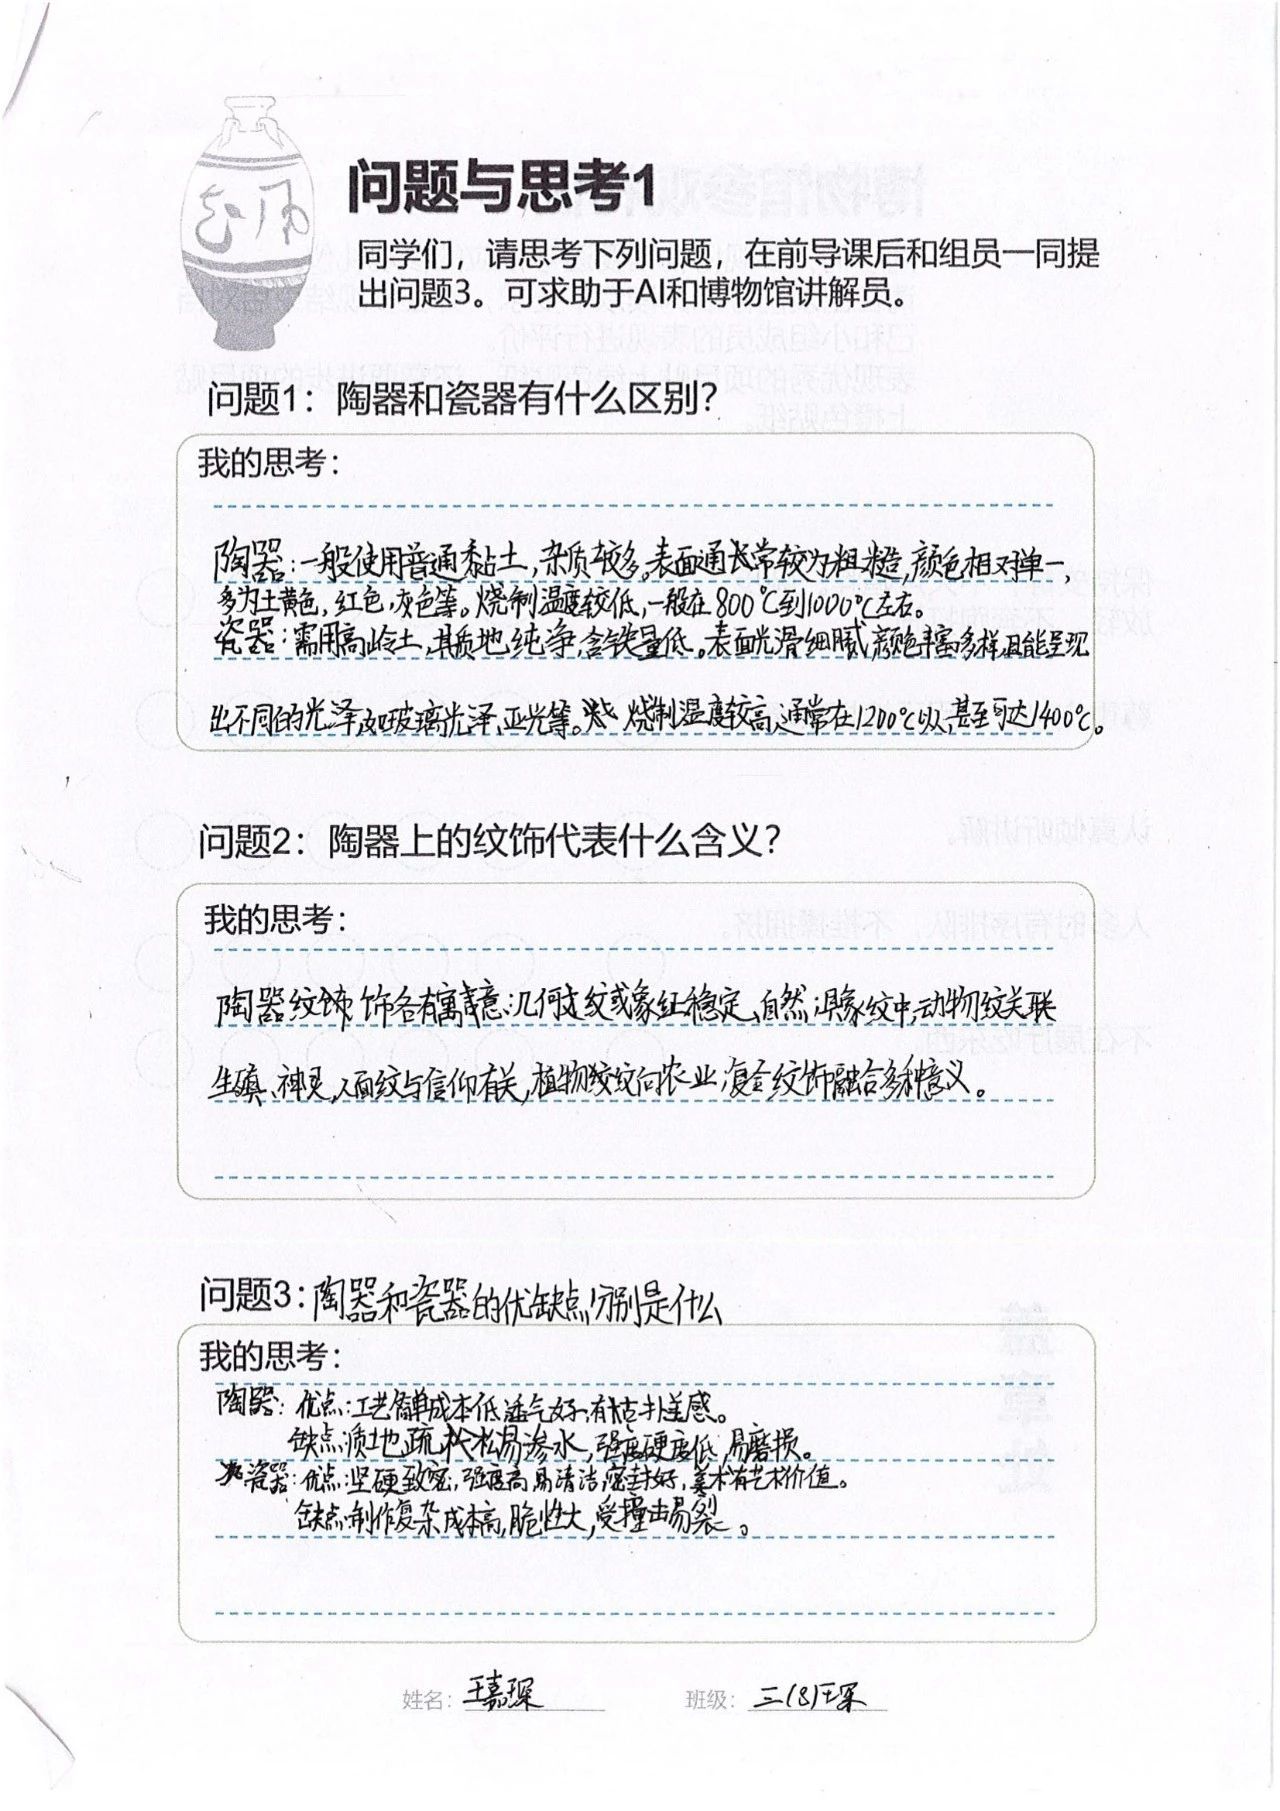 问题与思考1
同学们，请思考下列问题，在前导课后和组员一同提
出问题3。可求助于AI和博物馆讲解员。
问题1：陶器和瓷器有什么区别？
我的思考：
陶器：一般使用普通黏土，杂质较多。表面通长常较为粗糙，颜色相对单一，
多为土黄色，红色，灰色等。烧制温度较低，一般在800℃到1000℃左右。
瓷器：需用高岭土，其质地纯净，含铁量低。表面光滑细腻，颜色丰富多样，且能呈现
出不同的光泽，如玻璃光泽、亚光等。烧制温度较高，通常在1200℃以，甚至可达1400℃。
问题2：陶器上的纹饰代表什么含义？
我的思考：
陶器纹饰饰各有寓意：几何纹或象征稳定、自然；具象纹中，动物纹关联
生殖、神灵，人面纹与信仰有关，植物纹纹向农业；复合纹饰融合多种意义。
问题3：陶器和瓷器的优缺点分别是什么
我的思考：
陶器：优点：工艺简单成本低，透气好，有古朴美感。
缺点：质地疏松松易渗水，强度硬度低，易磨损。
瓷器：优点：坚硬致密，强度高，易清洁，密封好，美术有艺术价值。
缺点：制作复杂成本高，脆性大，受撞击易裂。
姓名：王嘉琛 班级：三(8)王琛